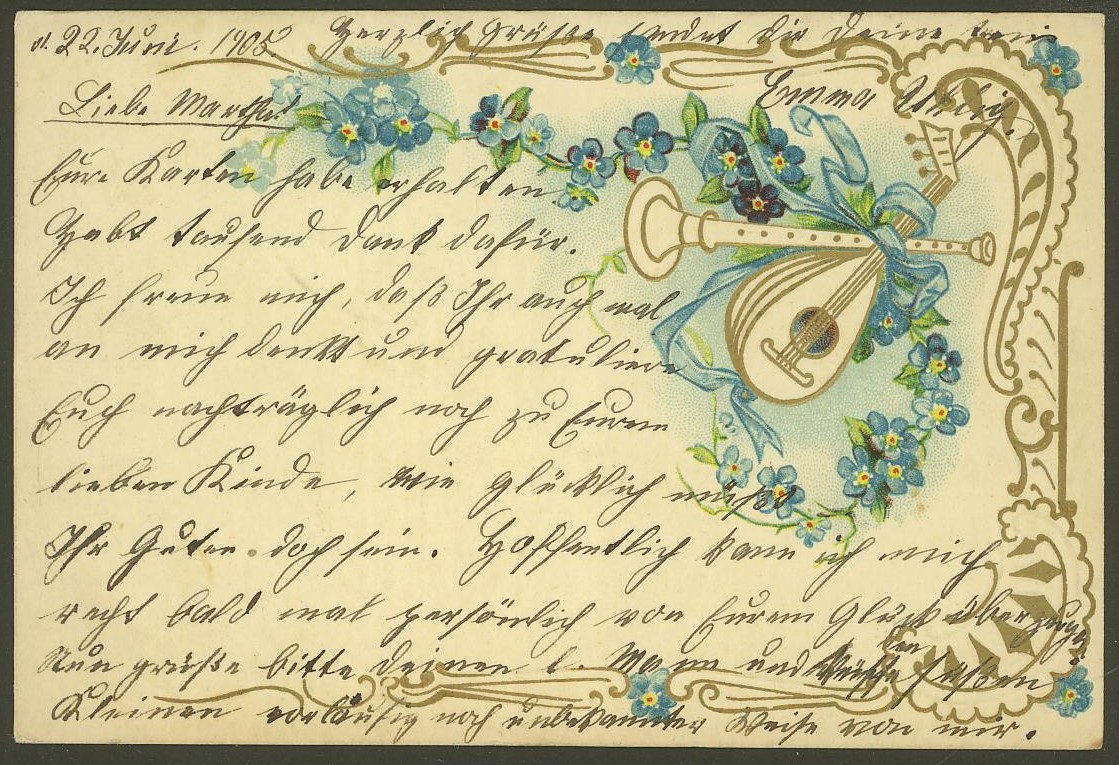 d. 22. Juni. 1905.
Liebe Martha!
Eure Karten habe erhalten.
Habt tausend Dank dafür.
Ich freue mich, daß Ihr auch mal
an mich denkt und gratuliere
Euch nachträglich noch zu Eurem
lieben Kinde, wie glücklich müßt
Ihr Guten doch sein. Hoffentlich kann ich mich
recht bald mal persönlich von Eurem Glück überzeugen.
Nun grüße bitte Deinen l. Mann und küsse den süßen
Kleinen vorläufig noch unbekannter Weise von mir.
Herzlich Grüße sendet Dir Deine
Emma